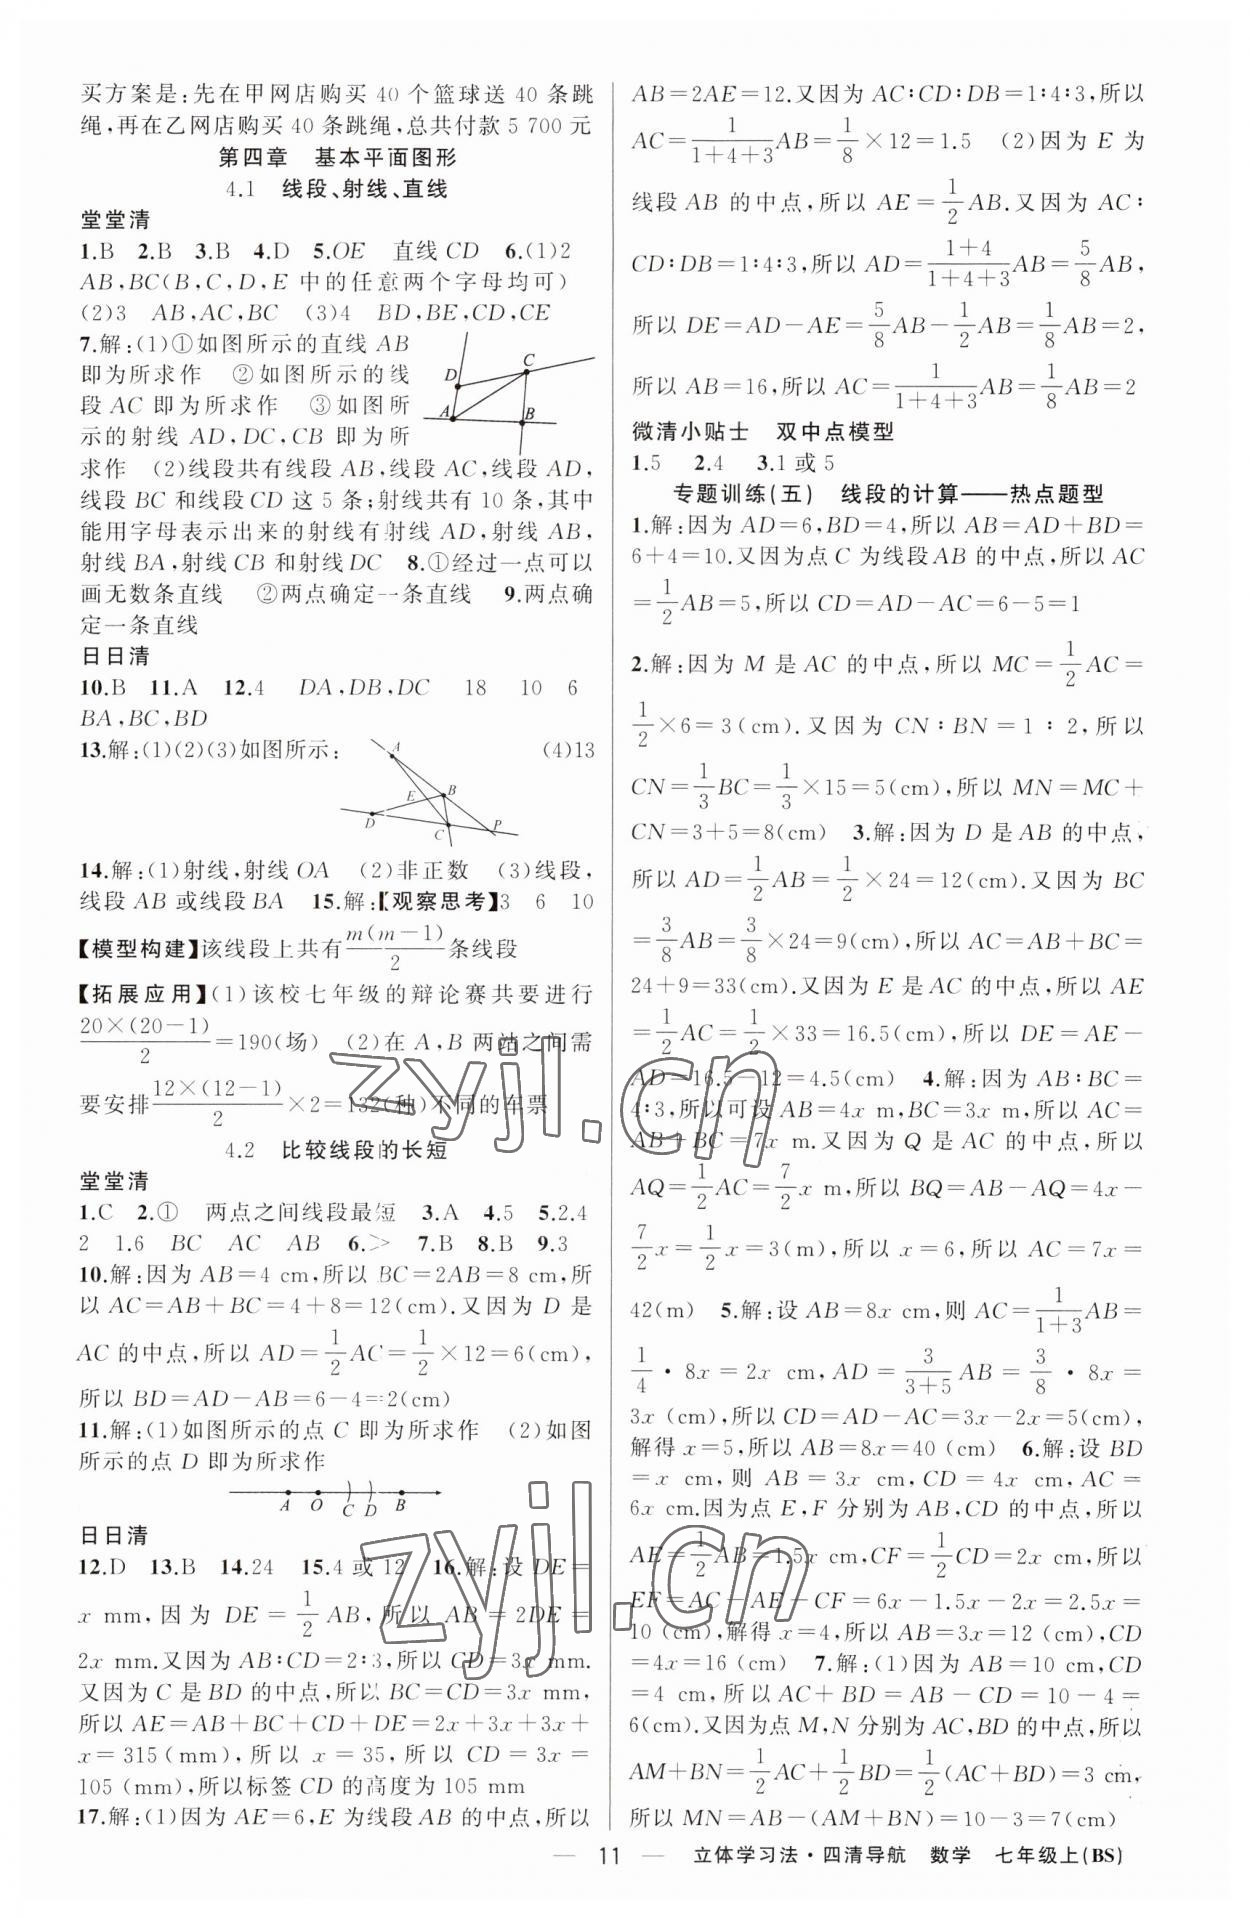 买方案是:先在甲网店购买 40 个篮球送 40 条跳
绳,再在乙网店购买 40 条跳绳,总共付款 5 700 元
第四章 基本平面图形
4.1 线段、射线、直线
堂堂清
1.B 2.B 3.B 4.D 5.OE 直线 CD 6.(1)2
AB,BC(B,C,D,E 中的任意两个字母均可)
(2)3 AB,AC,BC (3)4 BD,BE,CD,CE
7.解:(1)①如图所示的直线 AB
即为所求作 ②如图所示的线
段 AC 即为所求作 ③如图所
示的射线 AD,DC,CB 即为所
D C A B
求作 (2)线段共有线段 AB,线段 AC,线段 AD,
线段 BC 和线段 CD 这 5 条;射线共有 10 条,其中
能用字母表示出来的射线有射线 AD,射线 AB,
射线 BA,射线 CB 和射线 DC 8.①经过一点可以
画无数条直线 ②两点确定一条直线 9.两点确
定一条直线
日日清
10.B 11.A 12.4 DA,DB,DC 18 10 6
BA,BC,BD
13.解:(1)(2)(3)如图所示: (4)13
A E B D C P
14.解:(1)射线,射线 OA (2)非正数 (3)线段,
线段 AB 或线段 BA 15.解:【观察思考】3 6 10
【模型构建】该线段上共有\frac{m(m-1)}{2}条线段
【拓展应用】(1)该校七年级的辩论赛共要进行
\frac{20×(20-1)}{2}=190(场) (2)在 A,B 两站之间需
要安排\frac{12×(12-1)}{2}×2=132(种)不同的车票
4.2 比较线段的长短
堂堂清
1.C 2.① 两点之间线段最短 3.A 4.5 5.2.4
2 1.6 BC AC AB 6.> 7.B 8.B 9.3
10.解:因为 AB=4 cm,所以 BC=2AB=8 cm,所
以 AC=AB+BC=4+8=12(cm).又因为 D 是
AC 的中点,所以 AD=\frac{1}{2}AC=\frac{1}{2}×12=6(cm),
所以 BD=AD-AB=6-4=2(cm)
11.解:(1)如图所示的点 C 即为所求作 (2)如图
所示的点 D 即为所求作
A O C D B
日日清
12.D 13.B 14.24 15.4 或 12 16.解:设 DE=
x mm,因为 DE=\frac{1}{2}AB,所以 AB=2DE=
2x mm.又因为 AB∶CD=2∶3,所以 CD=3x mm.
又因为 C 是 BD 的中点,所以 BC=CD=3x mm,
所以 AE=AB+BC+CD+DE=2x+3x+3x+
x=315(mm),所以 x=35,所以 CD=3x=
105(mm),所以标签 CD 的高度为 105 mm
17.解:(1)因为 AE=6,E 为线段 AB 的中点,所以
AB=2AE=12.又因为 AC∶CD∶DB=1∶4∶3,所以
AC=\frac{1}{1+4+3}AB=\frac{1}{8}×12=1.5 (2)因为 E 为
线段 AB 的中点,所以 AE=\frac{1}{2}AB.又因为 AC∶
CD∶DB=1∶4∶3,所以 AD=\frac{1+4}{1+4+3}AB=\frac{5}{8}AB,
所以 DE=AD-AE=\frac{5}{8}AB-\frac{1}{2}AB=\frac{1}{8}AB=2,
所以 AB=16,所以 AC=\frac{1}{1+4+3}AB=\frac{1}{8}AB=2
微清小贴士 双中点模型
1.5 2.4 3.1 或 5
专题训练(五) 线段的计算——热点题型
1.解:因为 AD=6,BD=4,所以 AB=AD+BD=
6+4=10.又因为点 C 为线段 AB 的中点,所以 AC
=\frac{1}{2}AB=5,所以 CD=AD-AC=6-5=1
2.解:因为 M 是 AC 的中点,所以 MC=\frac{1}{2}AC=
\frac{1}{2}×6=3(cm).又因为 CN∶BN=1∶2,所以
CN=\frac{1}{3}BC=\frac{1}{3}×15=5(cm),所以 MN=MC+
CN=3+5=8(cm) 3.解:因为 D 是 AB 的中点,
所以 AD=\frac{1}{2}AB=\frac{1}{2}×24=12(cm).又因为 BC
=\frac{3}{8}AB=\frac{3}{8}×24=9(cm),所以 AC=AB+BC=
24+9=33(cm).又因为 E 是 AC 的中点,所以 AE
=\frac{1}{2}AC=\frac{1}{2}×33=16.5(cm),所以 DE=AE-
AD=16.5-12=4.5(cm) 4.解:因为 AB∶BC=
4∶3,所以可设 AB=4x m,BC=3x m,所以 AC=
AB+BC=7x m.又因为 Q 是 AC 的中点,所以
AQ=\frac{1}{2}AC=\frac{7}{2}x m,所以 BQ=AB-AQ=4x-
\frac{7}{2}x=\frac{1}{2}x=3(m),所以 x=6,所以 AC=7x=
42(m) 5.解:设 AB=8x cm,则 AC=\frac{1}{1+3}AB=
\frac{1}{4}·8x=2x cm,AD=\frac{3}{3+5}AB=\frac{3}{8}·8x=
3x (cm),所以 CD=AD-AC=3x-2x=5(cm),
解得 x=5,所以 AB=8x=40 (cm) 6.解:设 BD
=x cm,则 AB=3x cm,CD=4x cm,AC=
6x cm.因为点 E,F 分别为 AB,CD 的中点,所以
AE=\frac{1}{2}AB=1.5x cm,CF=\frac{1}{2}CD=2x cm,所以
EF=AC-AE-CF=6x-1.5x-2x=2.5x=
10 (cm),解得 x=4,所以 AB=3x=12 (cm),CD
=4x=16 (cm) 7.解:(1)因为 AB=10 cm,CD
=4 cm,所以 AC+BD=AB-CD=10-4=
6(cm).又因为点 M,N 分别为 AC,BD 的中点,所以
AM+BN=\frac{1}{2}AC+\frac{1}{2}BD=\frac{1}{2}(AC+BD)=3 cm,
所以 MN=AB-(AM+BN)=10-3=7(cm)
— 11 — 立体学习法·四清导航 数学 七年级上(BS)
zyjl.cn
zyjl.cn